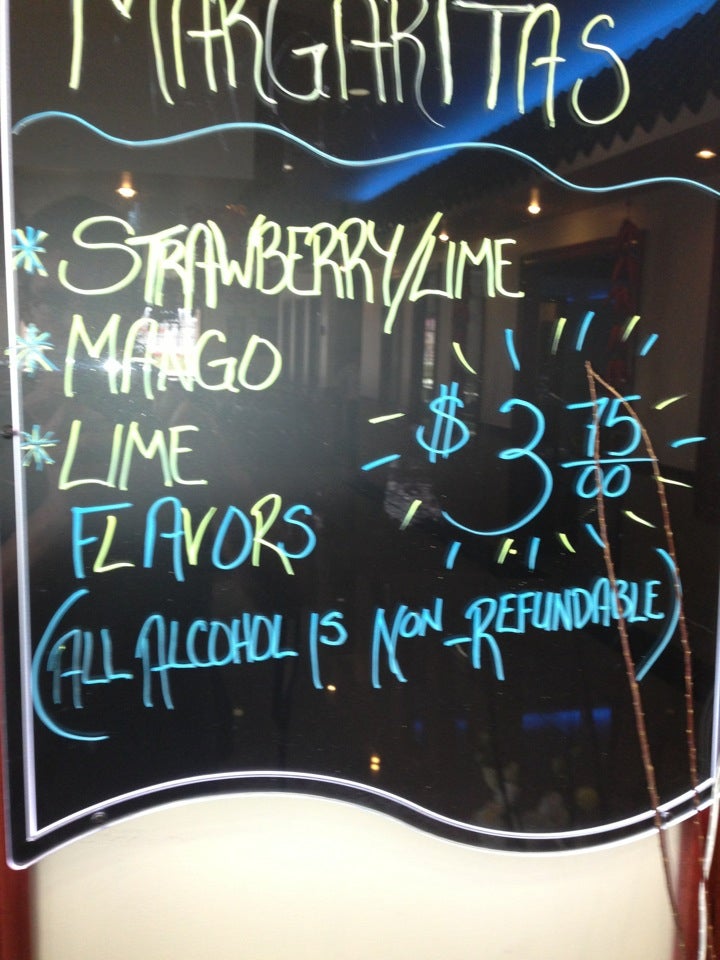 MARGARITAS
* STRAWBERRY/LIME
* MANGO
* LIME
FLAVORS
$3 75/00
(ALL ALCOHOL IS NON-REFUNDABLE)